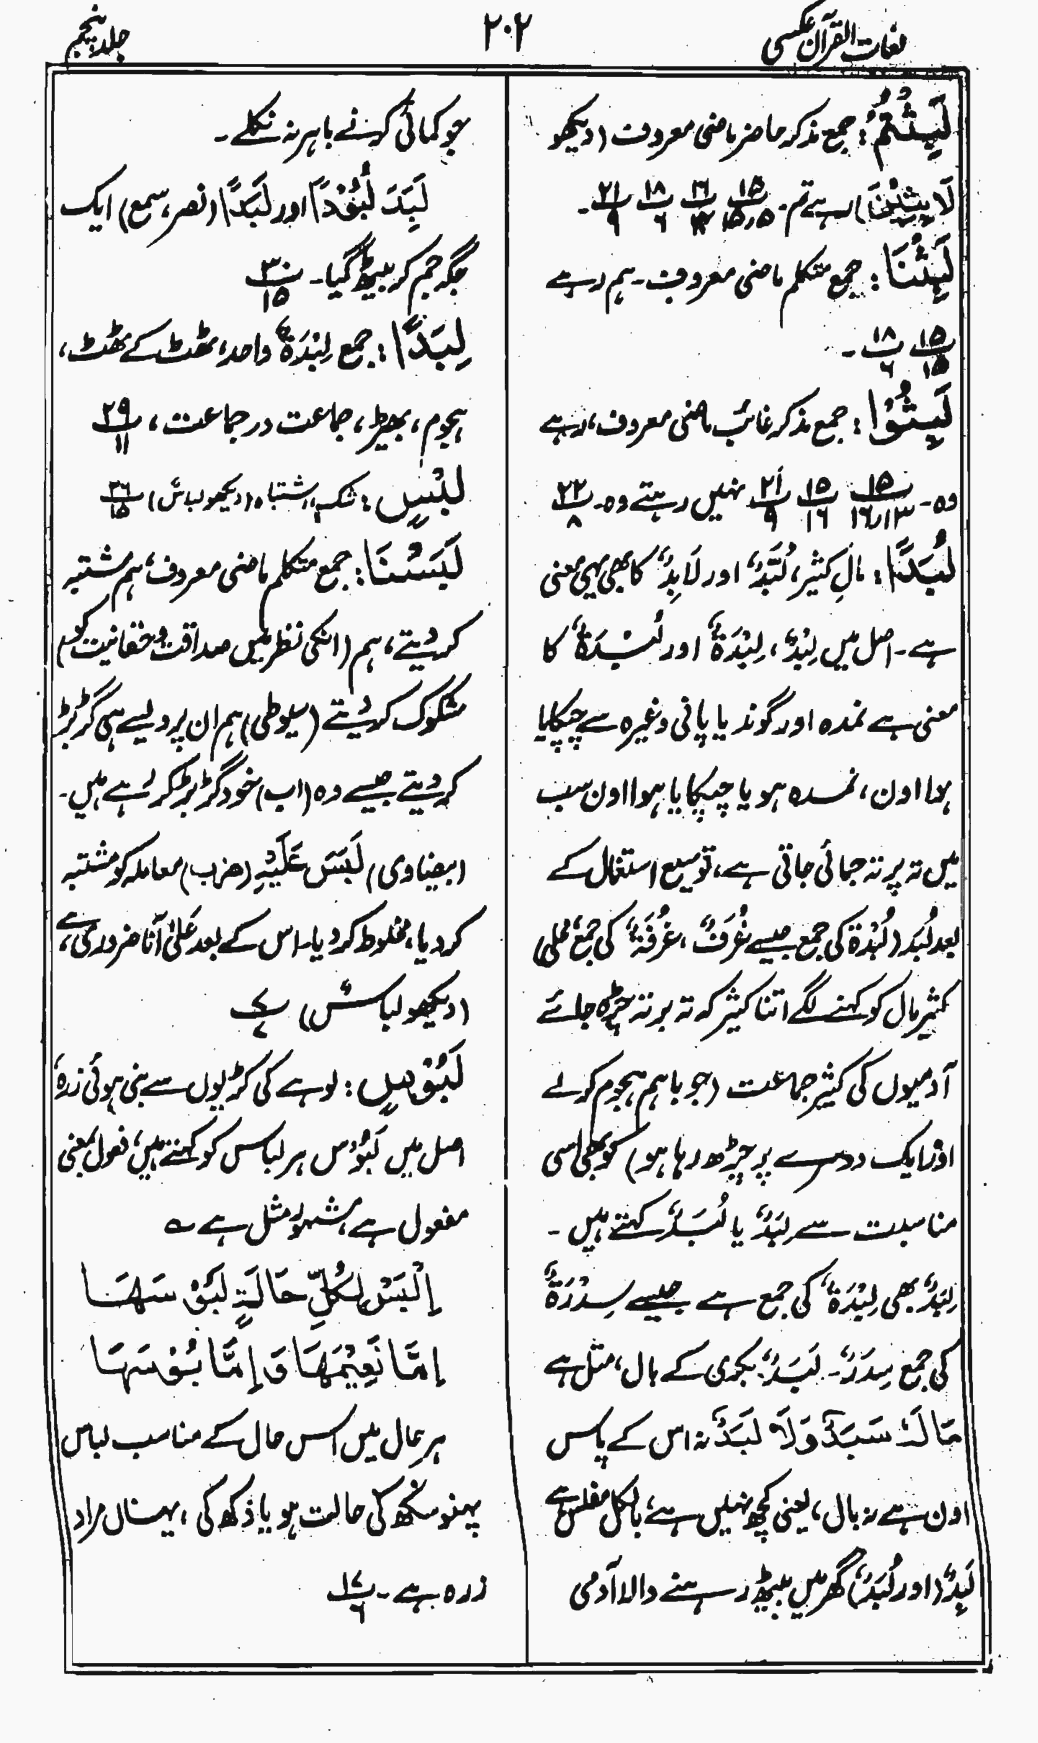 لغات القرآن عکسی
۲۰۲
جلد پنجم
لَبِثْتُمْ: جمع مذکر حاضر ماضی معروف (دیکھو
لَابِثِیْنَ) رہے تم۔ ۱۵/۱۵،۵ ۱۸/۶ ۲۱/۹۔
لَبِثْنَا: جمع متکلم ماضی معروف۔ ہم رہے
۱۵/۱۵ ۱۸/۶۔
لَبِثُوْا: جمع مذکر غائب ماضی معروف، رہے
وہ۔ ۱۵/۱۶،۱۳ ۱۵/۱۶ ۲۱/۹ نہیں رہتے وہ۔ ۲۲/۸
لُبَدًا: مالِ کثیر، لُبَّدٌ اور لَابِدٌ کا بھی یہی معنی
ہے۔ اصل میں لِبْدٌ، لِبْدَةٌ اور لُبْدَةٌ کا
معنی ہے نمدہ اور گوند یا پانی وغیرہ سے چپکایا
ہوا اون، نمدہ ہو یا چپکایا ہوا اون سب
میں تہ پر تہ جمائی جاتی ہے، توسیع استعمال کے
بعد لُبَد (لُبْدَة کی جمع جیسے غُرَفٌ، غُرْفَةٌ کی جمع محلی)
کثیر مال کو کہنے لگے اتنا کثیر کہ تہ بر تہ چڑھ جائے
آدمیوں کی کثیر جماعت (جو باہم ہجوم کرلے
اور ایک دوسرے پر چڑھ رہا ہو) کو بھی اسی
مناسبت سے لِبَدٌ یا لُبَدٌ کہتے ہیں۔
لِبَدٌ بھی لِبْدَةٌ کی جمع ہے جیسے سِدْرَةٌ
کی جمع سِدَرٌ۔ لَبَدٌ: بکری کے بال، مثل ہے
مَا لَهٗ سَبَدٌ وَلَا لَبَدٌ نہ اس کے پاس
اون ہے نہ بال، یعنی کچھ نہیں ہے، بالکل مفلس ہے
لَبِدٌ (اور لُبَدٌ) گھر میں بیٹھ رہنے والا آدمی
جو کمائی کرنے باہر نہ نکلے۔
لَبِدَ لُبُوْدًا اور لَبَدًا (نصر، سمع) ایک
جگہ جم کر بیٹھ گیا۔ ۳۰/۱۵
لِبَدًا: جمع لِبْدَةٌ واحد، ٹھٹ کے ٹھٹ،
ہجوم، بھیڑ، جماعت در جماعت، ۲۹/۱۱
لَبْسٍ: شک، اشتباہ (دیکھو لباسٌ) ۲۶/۱۵
لَبَسْنَا: جمع متکلم ماضی معروف، ہم مشتبہ
کر دیتے، ہم (انکی نظر میں صداقت و حقانیت کو)
مشکوک کر دیتے (سیوطی) ہم ان پر ویسے ہی گڑبڑ
کر دیتے جیسے وہ (اب) خود گڑبڑ کر رہے ہیں۔
(بیضاوی) لَبَسَ عَلَيْهِ (ضرب) معاملہ کو مشتبہ
کر دیا، مخلوط کر دیا۔ اس کے بعد عَلٰی آنا ضروری ہے،
(دیکھو لباسٌ) ۷/۷
لَبُوْسٍ: لوہے کی کڑیوں سے بنی ہوئی زرہ
اصل میں لَبُوْس ہر لباس کو کہتے ہیں، فعول بمعنی
مفعول ہے، مشہور مثل ہے ؎
اِلْبَسْ لِكُلِّ حَالَةٍ لَبُوْسَهَا
اِمَّا نَعِيْمَهَا وَاِمَّا بُوْسَهَا
ہر حال میں اس حال کے مناسب لباس
پہنو سکھ کی حالت ہو یا دکھ کی، یہاں مراد
زرہ ہے۔ ۱۷/۶